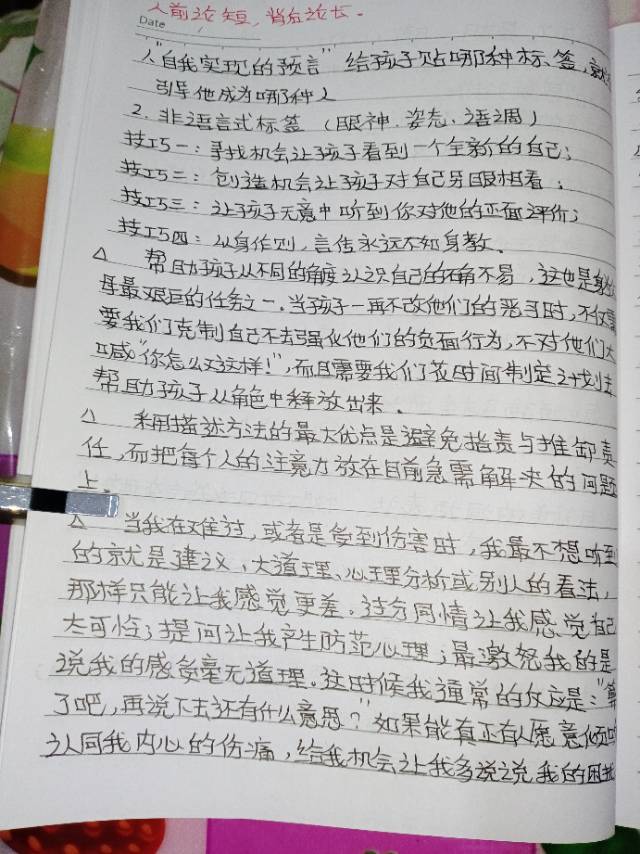 人前说短，背后说长。
Date
1."自我实现的预言" 给孩子贴哪种标签，就
引导他成为哪种人
2. 非语言式标签（眼神、姿态、语调）
技巧一：寻找机会让孩子看到一个全新的自己；
技巧二：创造机会让孩子对自己另眼相看；
技巧三：让孩子无意中听到你对他的正面评价；
技巧四：以身作则，言传永远不如身教。
△ 帮助孩子从不同的角度认识自己的确不易，这也是
母最艰巨的任务之一。当孩子一再不改他们的恶习时，不仅需
要我们克制自己不去强化他们的负面行为，不对他们大
喊"你怎么又这样！"，而且需要我们花时间制定计划去
帮助孩子从角色中释放出来。
△ 采用描述方法的最大优点是避免指责与推卸责
任，而把每个人的注意力放在目前急需解决的问题
上。
△ 当我在难过，或者是受到伤害时，我最不想听到
的就是建议、大道理、心理分析或别人的看法，
那样只能让我感觉更差。过分同情让我感觉自己
太可怜；提问让我产生防范心理；最激怒我的是
说我的感受毫无道理。这时候我通常的反应是："算
了吧，再说下去还有什么意思？"如果能有真正有人愿意倾听
认同我内心的伤痛，给我机会让我多说说我的困扰